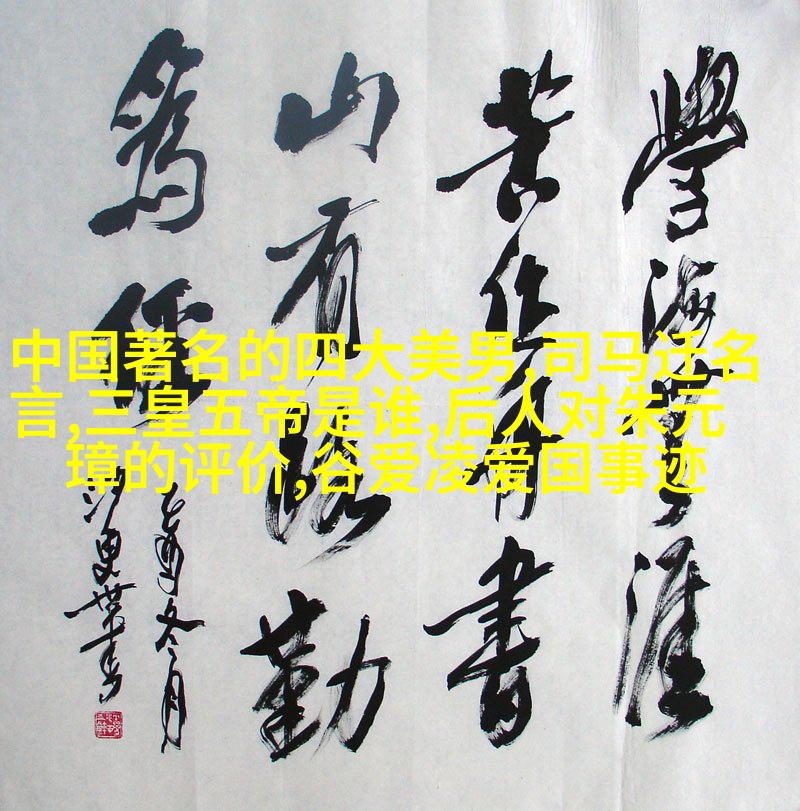 中国著名的四大美男,司马迁名
言,三皇五帝是谁,后人对朱元
璋的评价,谷爱凌爱国事迹
學海無涯
苦作舟書
山有路勤
為徑
乙酉冬月